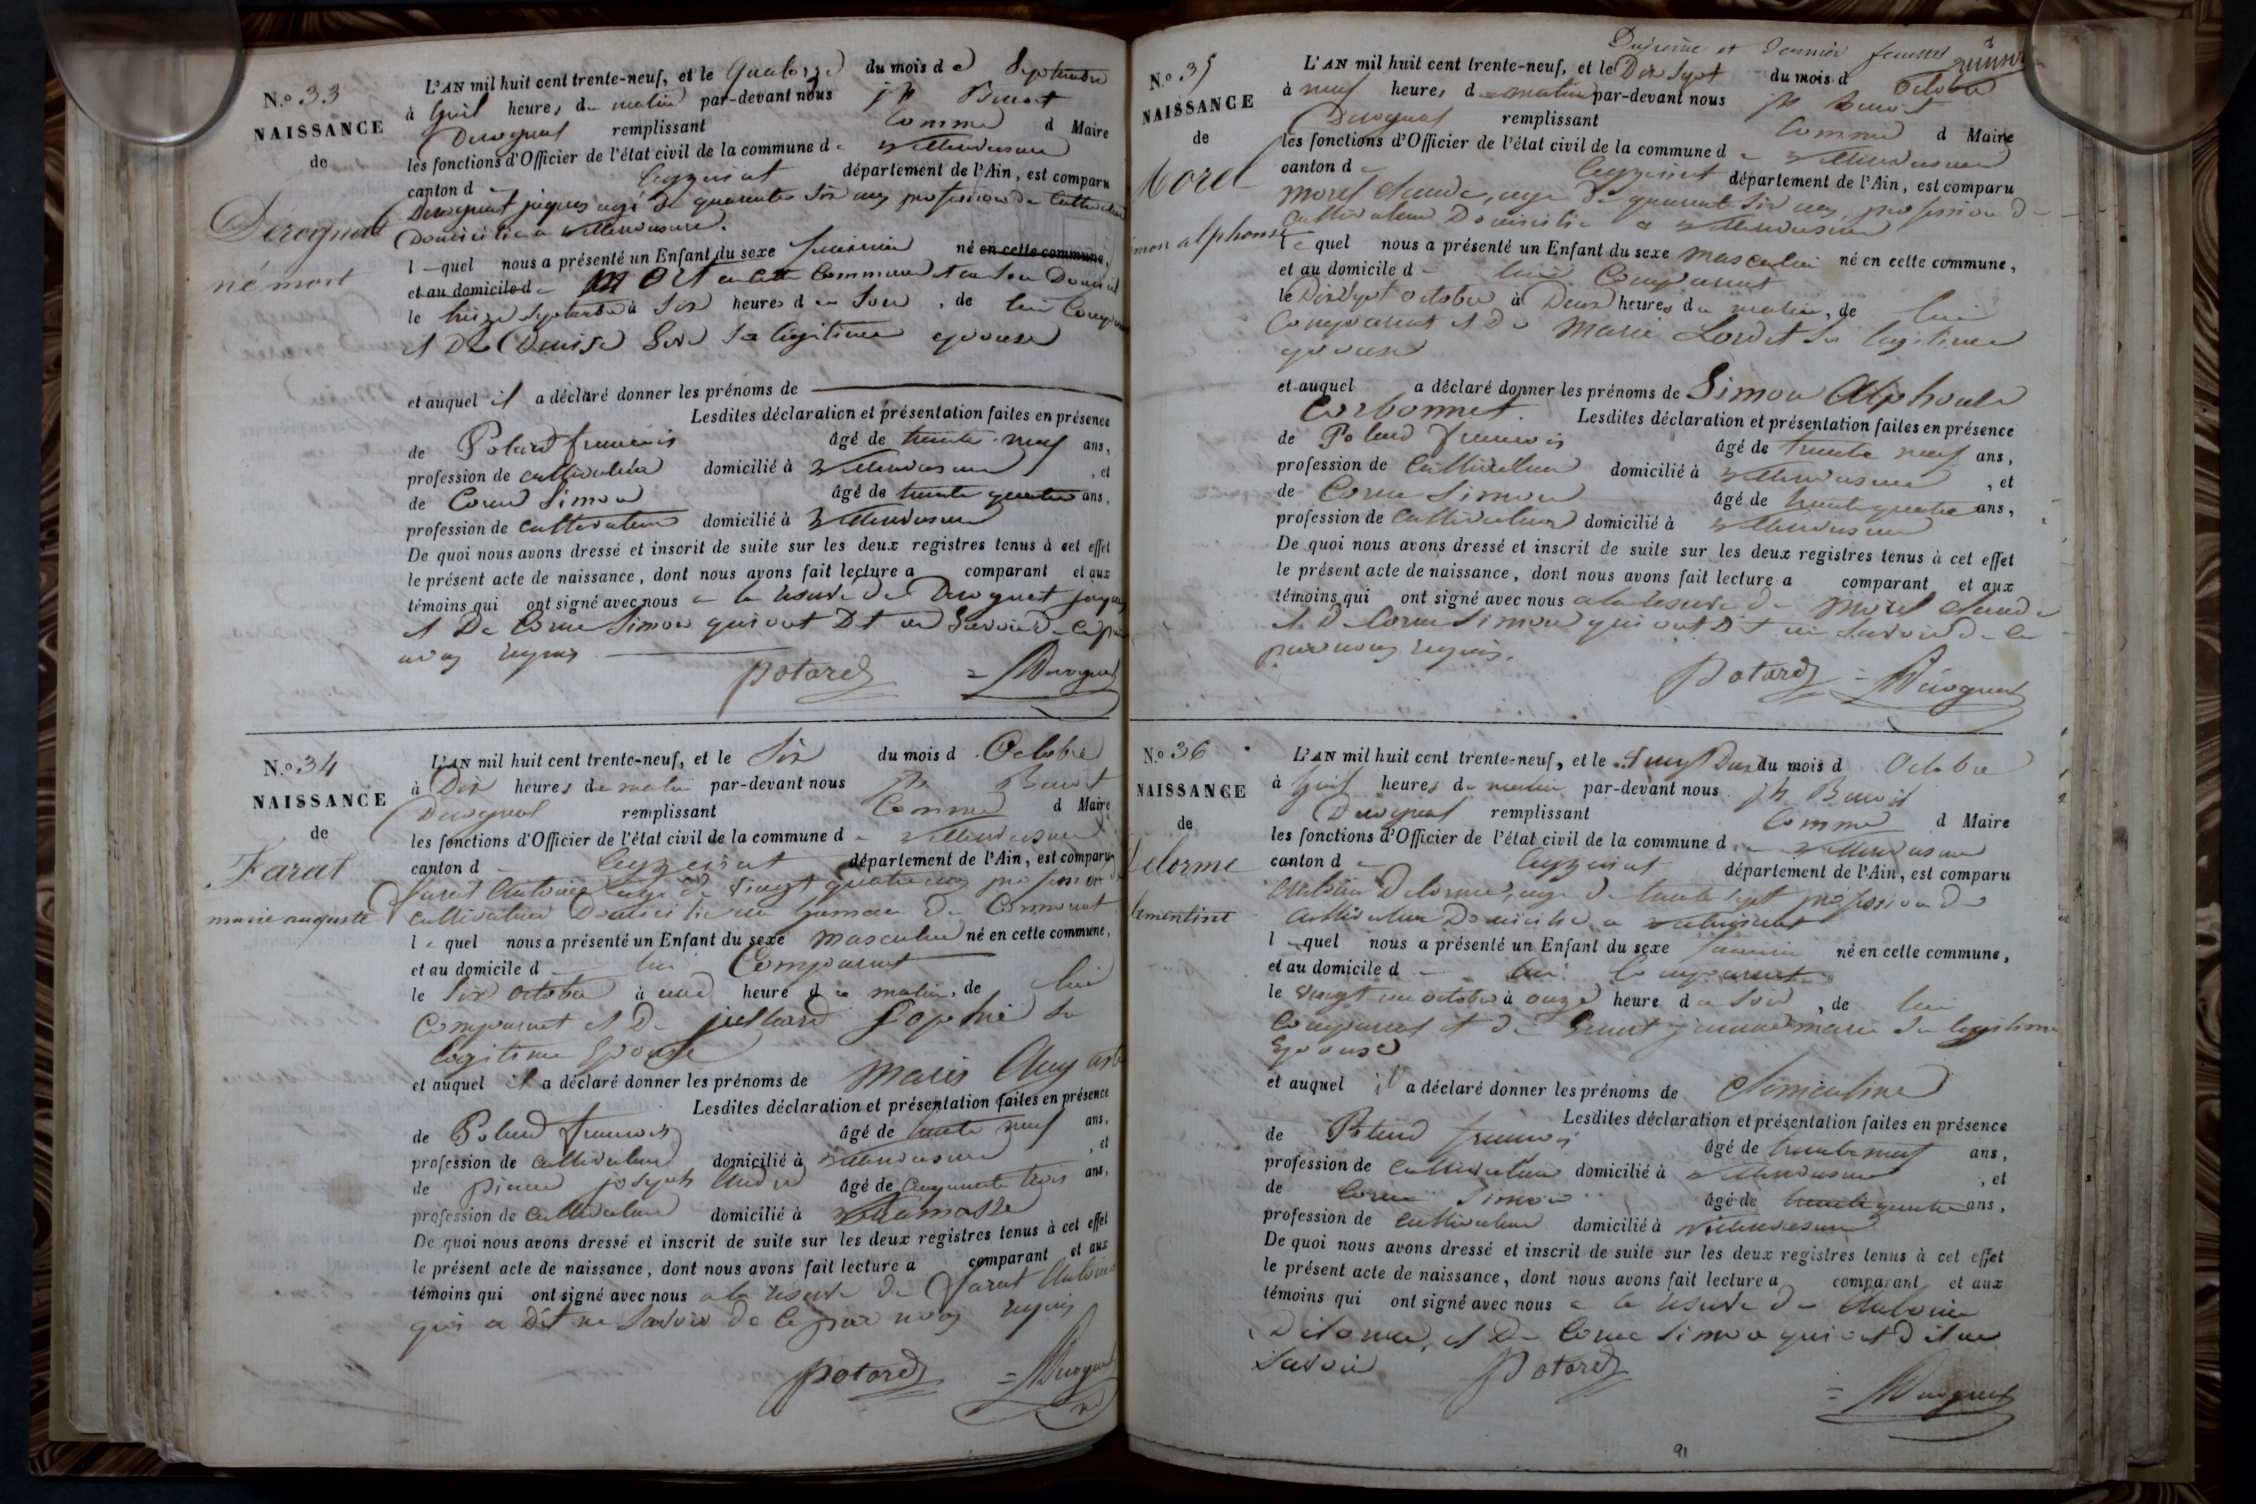 N.º 33
NAISSANCE
de
Derognat
né mort
L'AN mil huit cent trente-neuf, et le Quatorze du mois de Septembre
à huit heures du matin par-devant nous Benoit
Derognat remplissant comme d Maire
les fonctions d'Officier de l'état civil de la commune de Villereversure
canton de Ceyzeriat département de l'Ain, est comparu
Derognat jaques agé de quarante six ans profession de Cultivateur
Domicilié a Villereversure.
lequel nous a présenté un Enfant du sexe féminin né en cette commune,
et au domicile de MORT en cette Commune et en son Domicile
le treize Septembre à Six heures du Soir, de lui Comparant
et De Denise Sa légitime epouse
et auquel il a déclaré donner les prénoms de
Lesdites déclaration et présentation faites en présence
de Potard francois âgé de trente-neuf ans,
profession de cultivateur domicilié à Villereversure, et
de Corne Simon âgé de trente quatre ans,
profession de cultivateur domicilié à Villereversure
De quoi nous avons dressé et inscrit de suite sur les deux registres tenus à cet effet
le présent acte de naissance, dont nous avons fait lecture a comparant et aux
témoins qui ont signé avec nous a la reserve de Derognat jaques
et De Corne Simon qui ont Dit ne Savoir de ce par
nous requis
Potard = Derognat
N.º 34
NAISSANCE
de
Farat
marie auguste
L'AN mil huit cent trente-neuf, et le Six du mois d Octobre
à Dix heures du matin par-devant nous Benoit
Derognat remplissant Comme d Maire
les fonctions d'Officier de l'état civil de la commune de Villereversure
canton d Ceyzeriat département de l'Ain, est comparu
Farat Antoine agé de vingt quatre ans profession
cultivateur Domicilié au hameau de
lequel nous a présenté un Enfant du sexe masculin né en cette commune,
et au domicile d lui Comparant
le Six octobre à une heure du matin, de lui
Comparant et De Sophie Sa
légitime Epouse
et auquel il a déclaré donner les prénoms de Marie Auguste
Lesdites déclaration et présentation faites en présence
de Potard francois âgé de trente neuf ans,
profession de cultivateur domicilié à Villereversure, et
de pierre joseph André âgé de cinquante trois ans,
profession de cultivateur domicilié à
De quoi nous avons dressé et inscrit de suite sur les deux registres tenus à cet effet
le présent acte de naissance, dont nous avons fait lecture a comparant et aux
témoins qui ont signé avec nous a la reserve de Farat Antoine
qui a Dit ne Savoir de ce par nous requis
Potard = Derognat
Duxieme et Dernier feuillet
N.º 35
NAISSANCE
de
Morel
Simon alphonse
L'AN mil huit cent trente-neuf, et le Dix Sept du mois d Octobre
à neuf heures du matin par-devant nous Benoit
Derognat remplissant Comme d Maire
les fonctions d'Officier de l'état civil de la commune de Villereversure
canton de Ceyzeriat département de l'Ain, est comparu
Morel Claude, age de quarante Six ans, profession de
cultivateur Domicilié a Villereversure
lequel nous a présenté un Enfant du sexe masculin né en cette commune,
et au domicile de lui Comparant
le Dix Sept octobre à Deux heures du matin, de lui
Comparant et De Marie Sa légitime
epouse
et auquel a déclaré donner les prénoms de Simon Alphonse
Lesdites déclaration et présentation faites en présence
de Potard francois âgé de trente neuf ans,
profession de Cultivateur domicilié à Villereversure, et
de Corne Simon âgé de trente quatre ans,
profession de Cultivateur domicilié à Villereversure
De quoi nous avons dressé et inscrit de suite sur les deux registres tenus à cet effet
le présent acte de naissance, dont nous avons fait lecture a comparant et aux
témoins qui ont signé avec nous a la reserve de Morel Claude
et De Corne Simon qui ont Dit ne Savoir de ce
par nous requis.
Potard = Derognat
N.º 36
NAISSANCE
de
Delorme
Clementine
L'AN mil huit cent trente-neuf, et le Vingt Deux du mois d Octobre
à huit heures du matin par-devant nous Benoit
Derognat remplissant Comme d Maire
les fonctions d'Officier de l'état civil de la commune de Villereversure
canton de Ceyzeriat département de l'Ain, est comparu
Antoine Delorme, age de trente sept profession de
cultivateur Domicilié a
lequel nous a présenté un Enfant du sexe féminin né en cette commune,
et au domicile de lui Comparant
le vingt un octobre à onze heure du Soir, de lui
Comparant et de marie Sa légitime
Epouse
et auquel il a déclaré donner les prénoms de Clementine
Lesdites déclaration et présentation faites en présence
de Potard francois âgé de trente neuf ans,
profession de cultivateur domicilié à Villereversure, et
de Corne Simon âgé de trente quatre ans,
profession de Cultivateur domicilié à Villereversure
De quoi nous avons dressé et inscrit de suite sur les deux registres tenus à cet effet
le présent acte de naissance, dont nous avons fait lecture a comparant et aux
témoins qui ont signé avec nous a la reserve de Antoine
Delorme, et De Corne Simon qui ont dit ne
Savoir Potard
= Derognat
91